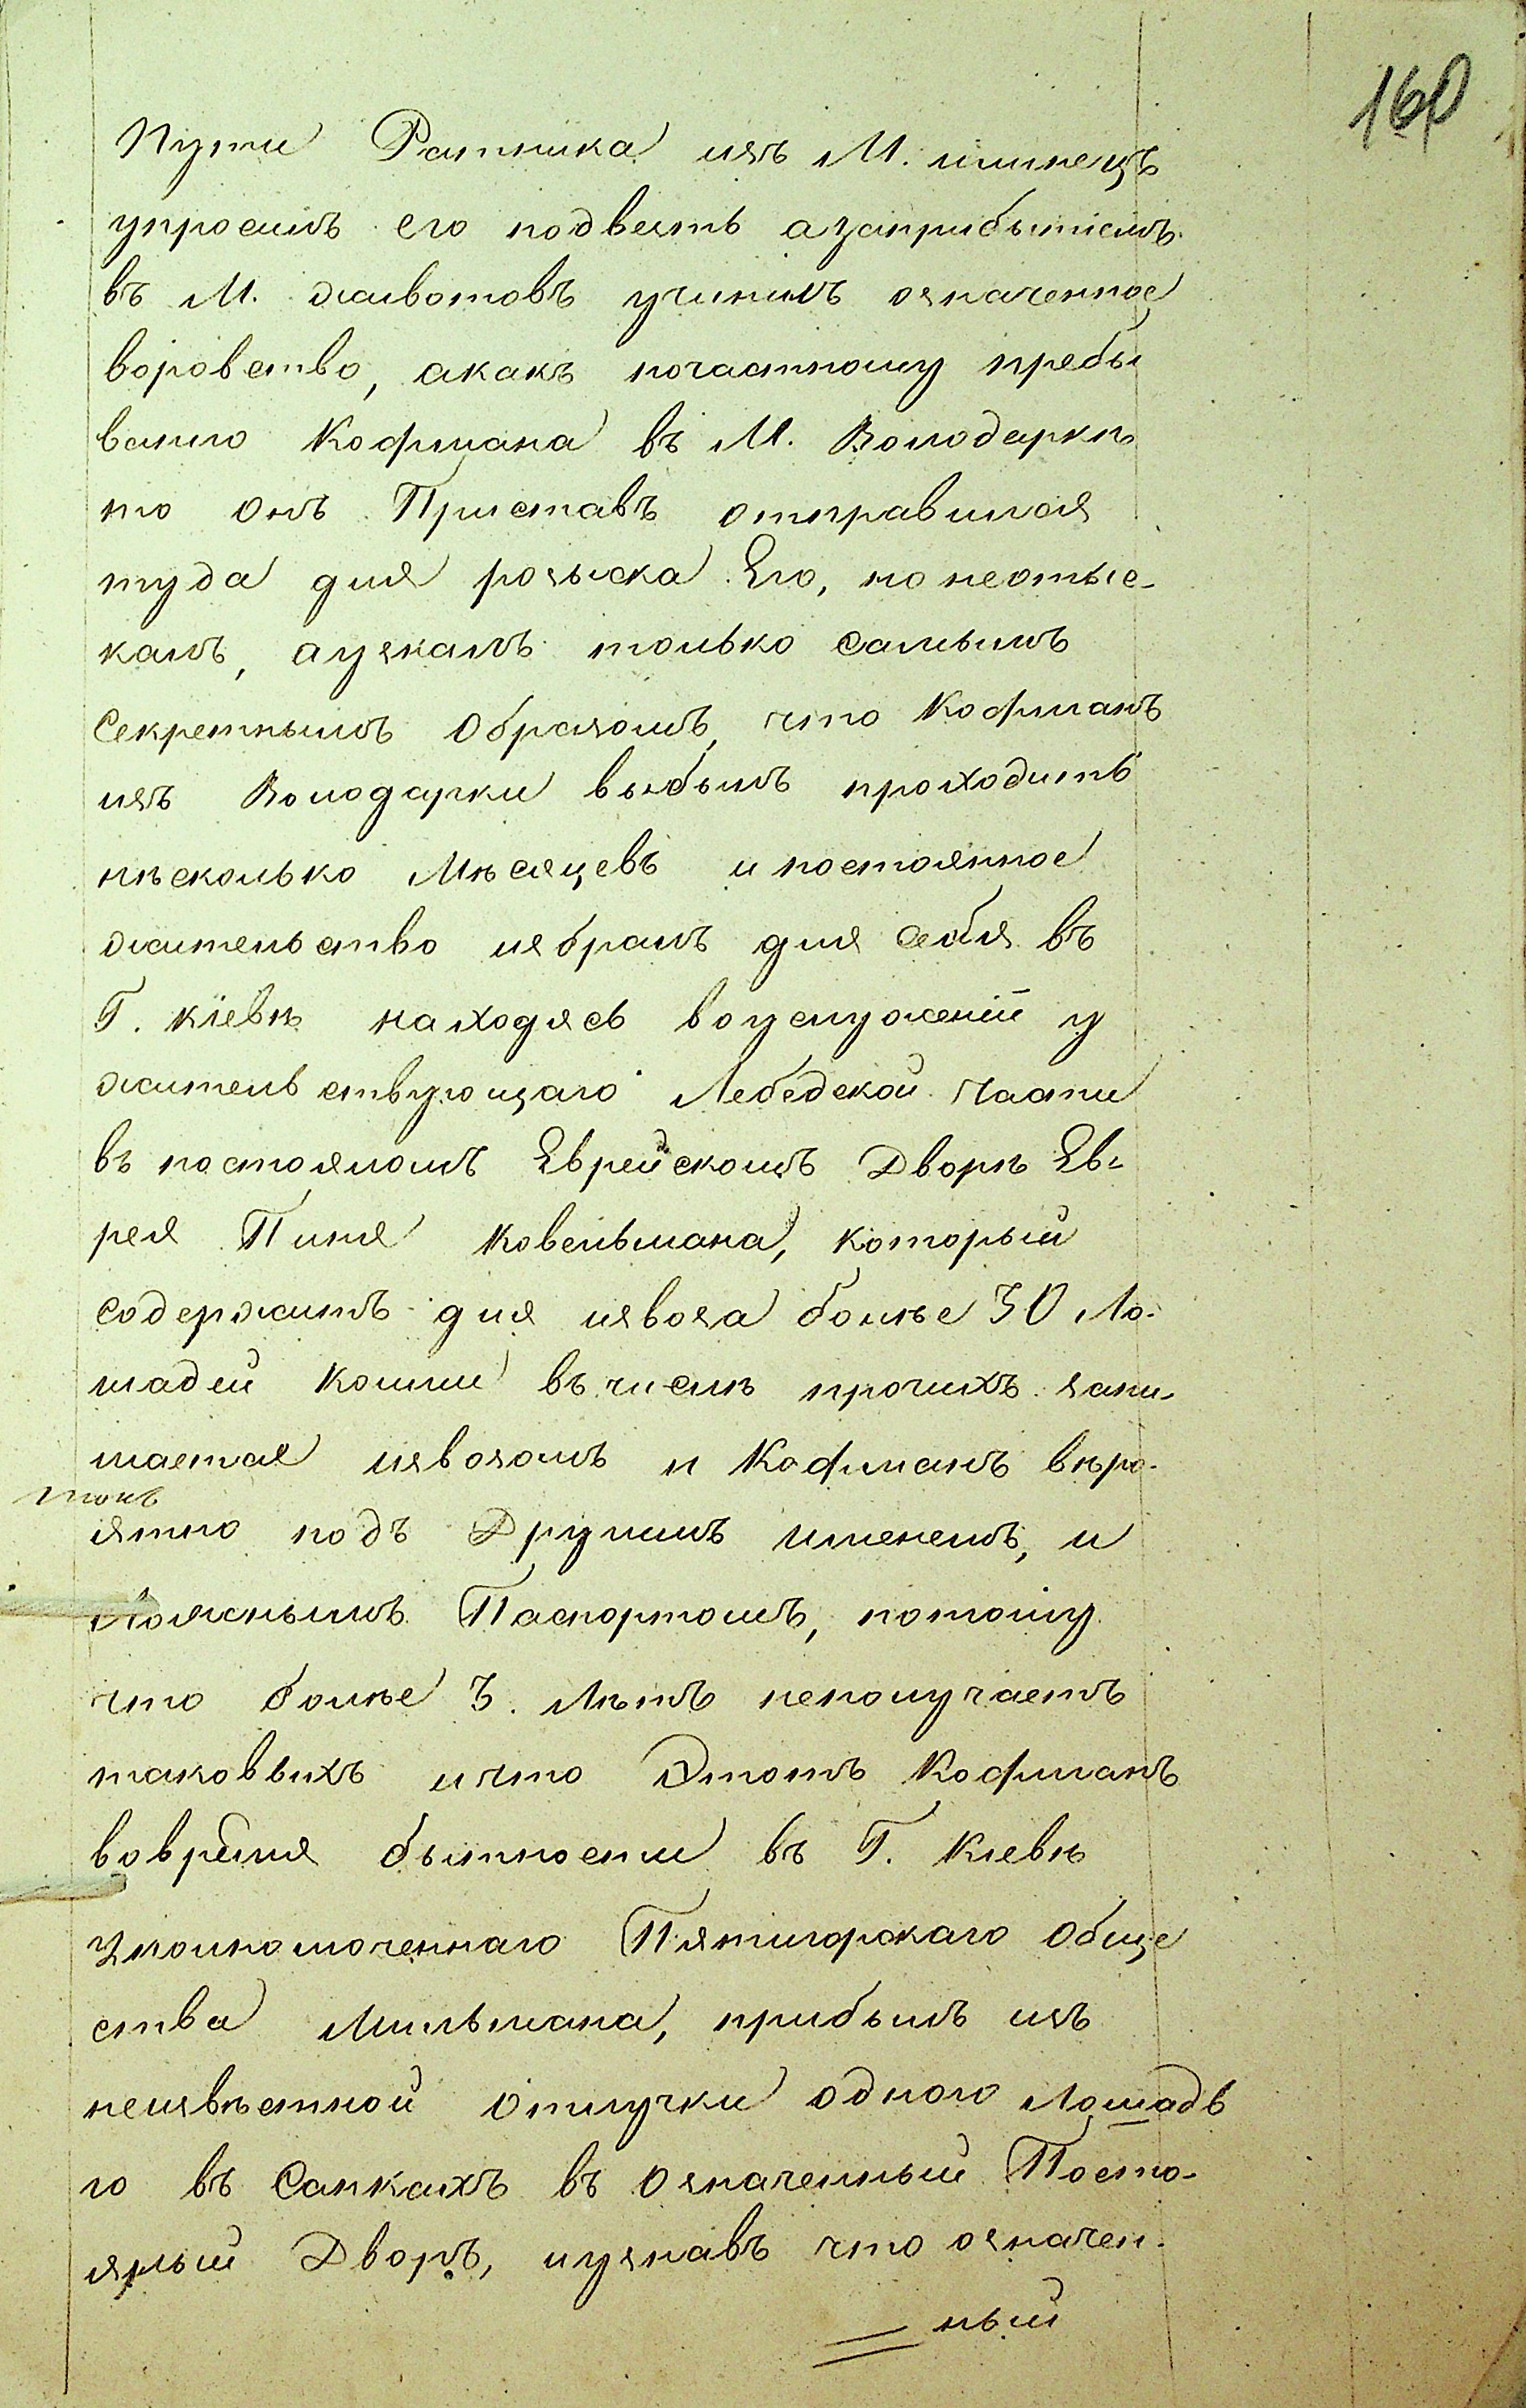 160
Пути Ратника изъ М. шинецъ
упросилъ его подвезть азаприбытіемъ
въ М. животовъ учинилъ означенное
воровство, акакъ почастному пребы
ванію Кофмана въ М. Володаркѣ
то онъ Приставъ отправился
туда для розыска Его, но неотыс-
калъ, аузналъ только самымъ
Секретнымъ Образомъ, что Кофманъ
изъ Володарки выбылъ проходитъ
нѣсколько Мѣсяцевъ и постоянное
жительство избралъ для себя въ
Г. кіевѣ находясь воуслуженіи у
жительствующаго Лебедской Части
въ постояломъ Еврейскомъ Дворѣ Ев-
рея Пиня Ковельмана, который
Содержитъ для извоза болѣе 30 Ло-
шадей коими въ числѣ прочихъ зани-
мается извозомъ и Кофманъ вѣро-
ятно подъ Другимъ именемъ, и
Ложнымъ Паспортомъ, потому
что болѣе 3. Лѣтъ неполучаетъ
таковыхъ ичто Этотъ Кофманъ
вовремя бытности въ Г. Кіевѣ
Уполномоченнаго Пятигорскаго Обще
ства Мильмана, прибылъ изъ
неизвѣстной Отлучки одною Лошадь
ю въ Санкахъ въ Означенный Посто-
ялый Дворъ, иузнавъ что означен-
ный